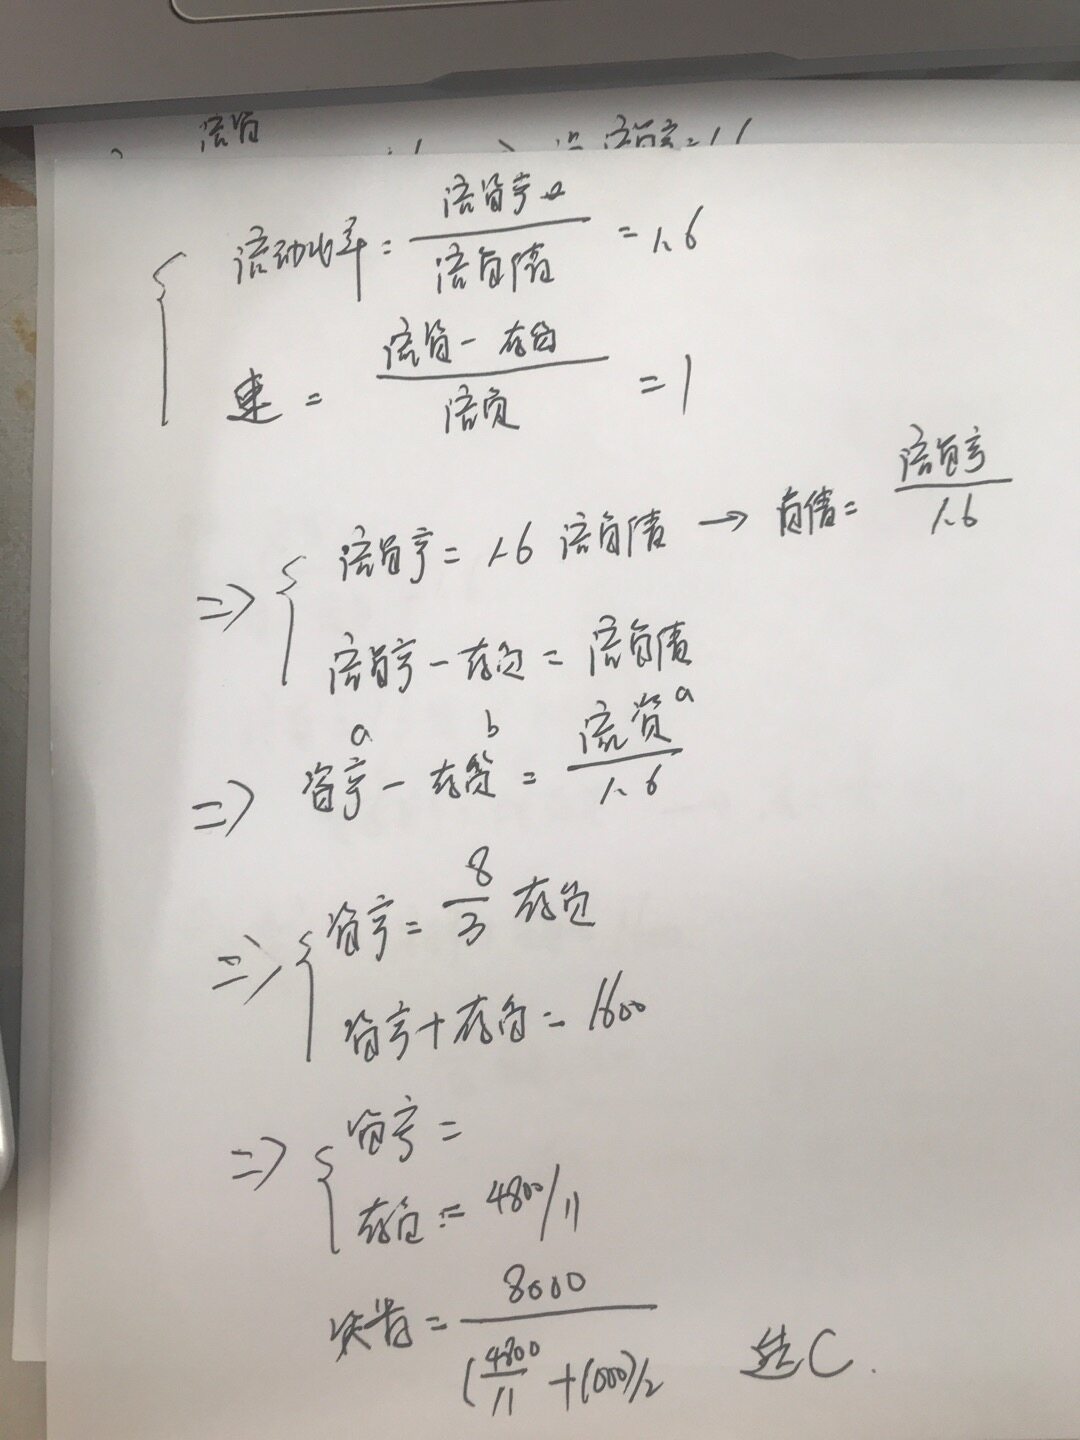 流资
流资产=1.6
流动比率=流资产/流负债=1.6
速=流资-存货/流负=1
=> 流资产=1.6 流负债 → 负债=流资产/1.6
流资产-存货=流负债
a b a
=> 资产-存货=流资/1.6
=> 资产=8/3 存货
资产+存货=1600
=> 资产=
存货=4800/11
次数=8000/(4800/11+1000)/2 选C.